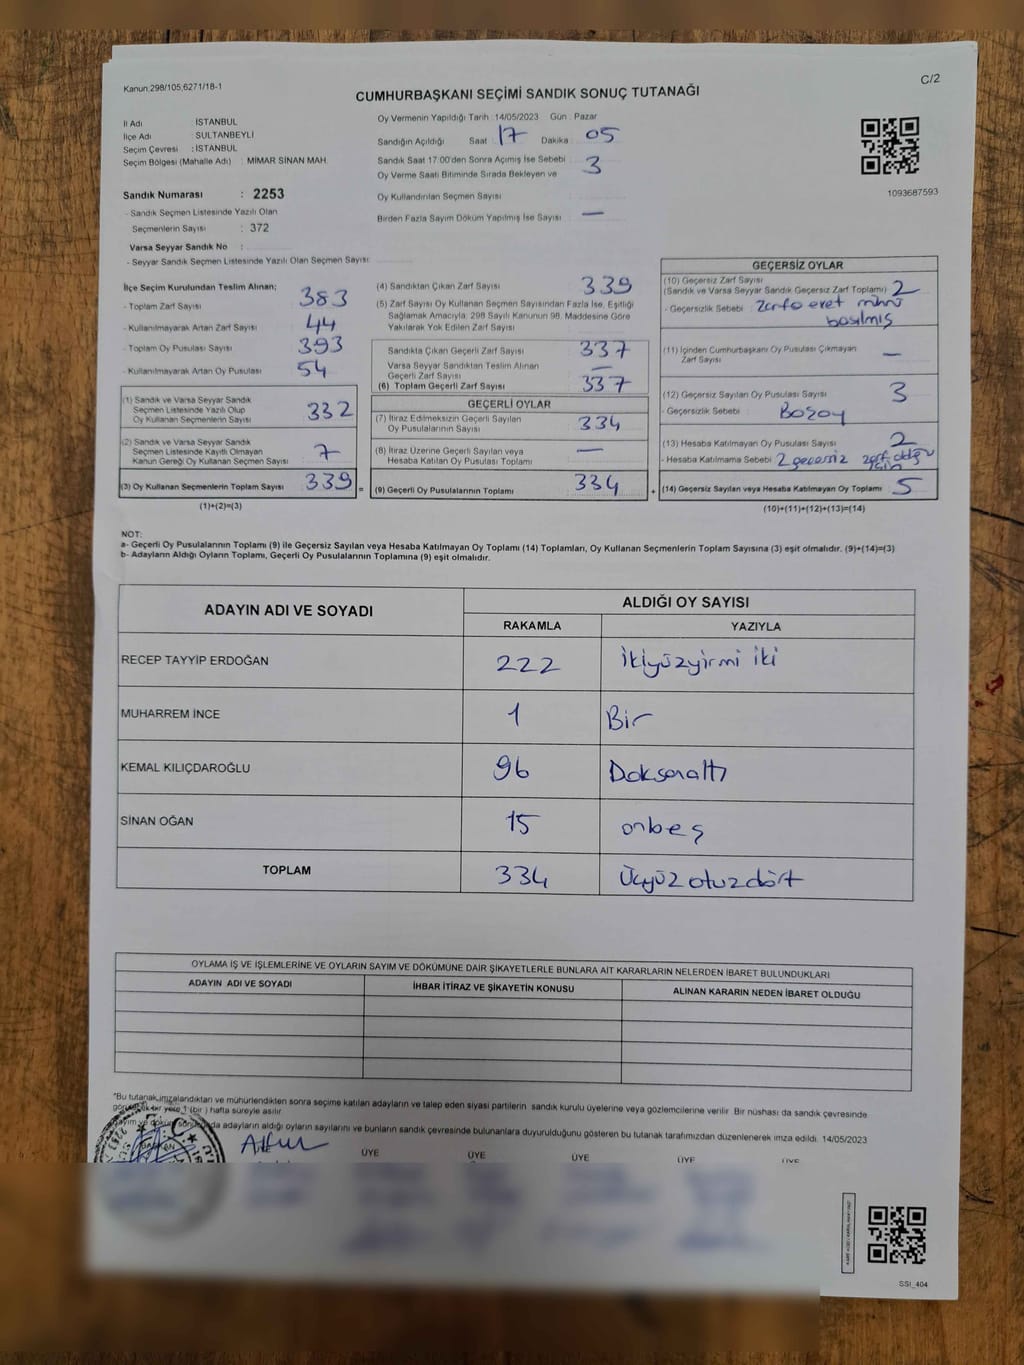 Kanun,298/105,6271/18-1
C/2
CUMHURBAŞKANI SEÇİMİ SANDIK SONUÇ TUTANAĞI
İl Adı : İSTANBUL
İlçe Adı : SULTANBEYLİ
Seçim Çevresi : İSTANBUL
Seçim Bölgesi (Mahalle Adı) : MİMAR SİNAN MAH.
Sandık Numarası : 2253
- Sandık Seçmen Listesinde Yazılı Olan
Seçmenlerin Sayısı : 372
Varsa Seyyar Sandık No :
- Seyyar Sandık Seçmen Listesinde Yazılı Olan Seçmen Sayısı:
Oy Vermenin Yapıldığı Tarih :14/05/2023 Gün : Pazar
Sandığın Açıldığı Saat : 17 Dakika : 05
Sandık Saat 17:00'den Sonra Açımış İse Sebebi :
Oy Verme Saati Bitiminde Sırada Bekleyen ve 3
Oy Kullandırılan Seçmen Sayısı :
Birden Fazla Sayım Döküm Yapılmış İse Sayısı : —
1093687593
İlçe Seçim Kurulundan Teslim Alınan;
- Toplam Zarf Sayısı : 383
- Kullanılmayarak Artan Zarf Sayısı : 44
- Toplam Oy Pusulası Sayısı : 393
- Kullanılmayarak Artan Oy Pusulası : 54
(1) Sandık ve Varsa Seyyar Sandık
Seçmen Listesinde Yazılı Olup
Oy Kullanan Seçmenlerin Sayısı : 332
(2) Sandık ve Varsa Seyyar Sandık
Seçmen Listesinde Kayıtlı Olmayan
Kanun Gereği Oy Kullanan Seçmen Sayısı : 7
(3) Oy Kullanan Seçmenlerin Toplam Sayısı : 339
(1)+(2)=(3)
(4) Sandıktan Çıkan Zarf Sayısı : 339
(5) Zarf Sayısı Oy Kullanan Seçmen Sayısından Fazla İse, Eşitliği
Sağlamak Amacıyla, 298 Sayılı Kanunun 98. Maddesine Göre
Yakılarak Yok Edilen Zarf Sayısı :
Sandıkta Çıkan Geçerli Zarf Sayısı : 337
Varsa Seyyar Sandıktan Teslim Alınan
Geçerli Zarf Sayısı : —
(6) Toplam Geçerli Zarf Sayısı : 337
GEÇERLİ OYLAR
(7) İtiraz Edilmeksizin Geçerli Sayılan
Oy Pusulalarının Sayısı : 334
(8) İtiraz Üzerine Geçerli Sayılan veya
Hesaba Katılan Oy Pusulası Toplamı : —
= (9) Geçerli Oy Pusulalarının Toplamı : 334
GEÇERSİZ OYLAR
(10) Geçersiz Zarf Sayısı
(Sandık ve Varsa Seyyar Sandık Geçersiz Zarf Toplamı) : 2
- Geçersizlik Sebebi : Zarfa evet mührü
basılmış
(11) İçinden Cumhurbaşkanı Oy Pusulası Çıkmayan
Zarf Sayısı : —
(12) Geçersiz Sayılan Oy Pusulası Sayısı : 3
- Geçersizlik Sebebi :
(13) Hesaba Katılmayan Oy Pusulası Sayısı : 2
- Hesaba Katılmama Sebebi : 2 geçersiz zarf olduğu
için
+ (14) Geçersiz Sayılan veya Hesaba Katılmayan Oy Toplamı : 5
(10)+(11)+(12)+(13)=(14)
NOT:
a- Geçerli Oy Pusulalarının Toplamı (9) ile Geçersiz Sayılan veya Hesaba Katılmayan Oy Toplamı (14) Toplamları, Oy Kullanan Seçmenlerin Toplam Sayısına (3) eşit olmalıdır. (9)+(14)=(3)
b- Adayların Aldığı Oyların Toplamı, Geçerli Oy Pusulalarının Toplamına (9) eşit olmalıdır.
ADAYIN ADI VE SOYADI
ALDIĞI OY SAYISI
RAKAMLA YAZIYLA
RECEP TAYYİP ERDOĞAN 222 ikiyüzyirmi iki
MUHARREM İNCE 1 Bir
KEMAL KILIÇDAROĞLU 96 Doksanaltı
SİNAN OĞAN 15 onbeş
TOPLAM 334 Üçyüz otuzdört
OYLAMA İŞ VE İŞLEMLERİNE VE OYLARIN SAYIM VE DÖKÜMÜNE DAİR ŞİKAYETLERLE BUNLARA AİT KARARLARIN NELERDEN İBARET BULUNDUKLARI
ADAYIN ADI VE SOYADI İHBAR İTİRAZ VE ŞİKAYETİN KONUSU ALINAN KARARIN NEDEN İBARET OLDUĞU
*Bu tutanak imzalandıktan ve mühürlendikten sonra seçime katılan adayların ve talep eden siyasi partilerin sandık kurulu üyelerine veya gözlemcilerine verilir. Bir nüshası da sandık çevresinde
yere 1 (bir) hafta süreyle asılır.
adayların aldığı oyların sayılarını ve bunların sandık çevresinde bulunanlara duyurulduğunu gösteren bu tutanak tarafımızdan düzenlenerek imza edildi. 14/05/2023
BAŞKAN ÜYE ÜYE ÜYE ÜYE ÜYE
SSİ_404